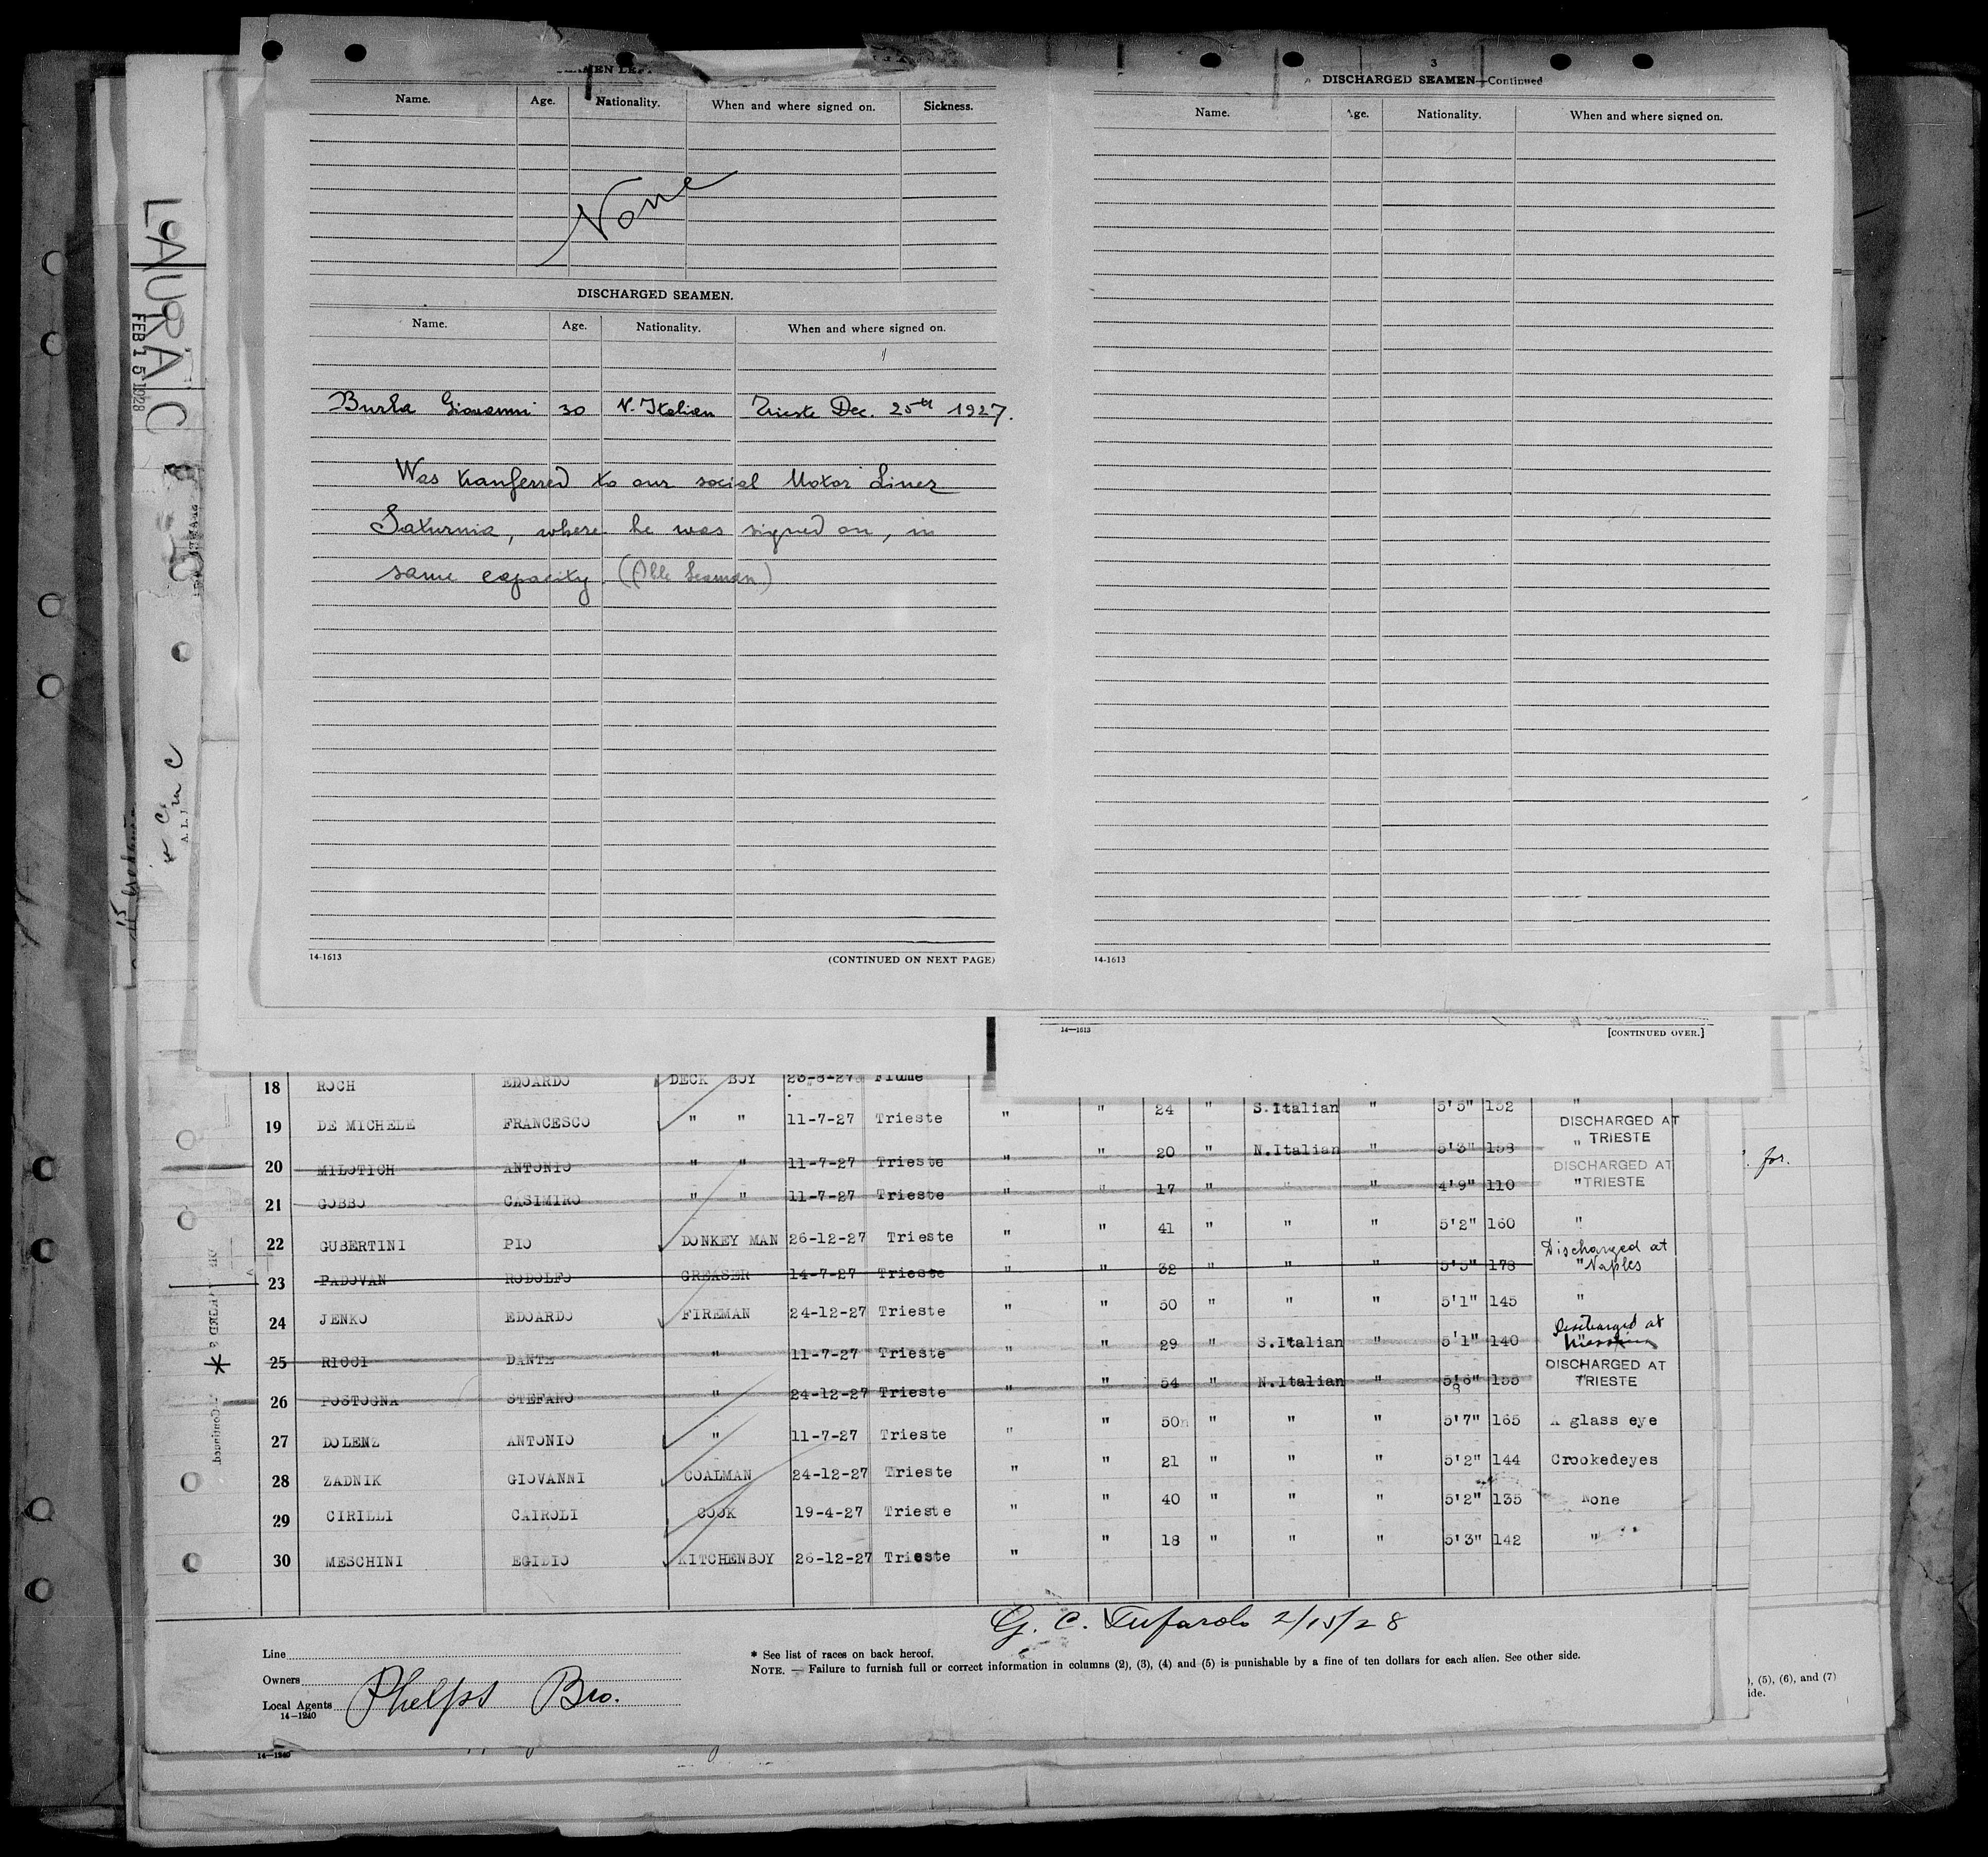 LAURA C
FEB 15 1928
Name. Age. Nationality. When and where signed on. Sickness.
None
DISCHARGED SEAMEN.
Name. Age. Nationality. When and where signed on.
"
Burla Giovanni 30 N. Italian Trieste Dec. 25th 1927.
Was tranferred to our social Motor Liner
Saturnia, where he was signed on, in
same capacity. (Able Seaman)
14-1613 (CONTINUED ON NEXT PAGE)
3
DISCHARGED SEAMEN—Continued
Name. Age. Nationality. When and where signed on.
14-1613
14—1613 [CONTINUED OVER.]
18 ROCH EDOARDO DECK BOY 23-8-27 Fiume
19 DE MICHELE FRANCESCO " " 11-7-27 Trieste " " 24 " S.Italian " 5'5" 152 "
20 MILOTICH ANTONIO " " 11-7-27 Trieste " " 20 " N.Italian " 5'3" 158 " DISCHARGED AT TRIESTE
21 GOBBO CASIMIRO " " 11-7-27 Trieste " " 17 " " " 4'9" 110 " DISCHARGED AT TRIESTE
22 GUBERTINI PIO DONKEY MAN 26-12-27 Trieste " " 41 " " " 5'2" 160 "
23 PADOVAN RODOLFO GREASER 14-7-27 Trieste " " 32 " " " 5'5" 178 " Discharged at Naples
24 JENKO EDOARDO FIREMAN 24-12-27 Trieste " " 50 " " " 5'1" 145 "
* 25 RICCI DANTE " 11-7-27 Trieste " " 29 " S.Italian " 5'1" 140 " Discharged at
26 POSTOGNA STEFANO " 24-12-27 Trieste " " 54 " N.Italian " 5'6" 155 " DISCHARGED AT TRIESTE
27 DOLENZ ANTONIO " 11-7-27 Trieste " " 50 " " " 5'7" 165 A glass eye
28 ZADNIK GIOVANNI COALMAN 24-12-27 Trieste " " 21 " " " 5'2" 144 Crookedeyes
29 CIRILLI CAIROLI COOK 19-4-27 Trieste " " 40 " " " 5'2" 135 None
30 MESCHINI EGIDIO KITCHENBOY 26-12-27 Trieste " " 18 " " " 5'3" 142 "
for.
G. C. Tufarolo 2/15/28
Line
Owners
Local Agents Phelps Bro.
14—1240
* See list of races on back hereof.
NOTE. — Failure to furnish full or correct information in columns (2), (3), (4) and (5) is punishable by a fine of ten dollars for each alien. See other side.
, (5), (6), and (7)
ide.
14—1240